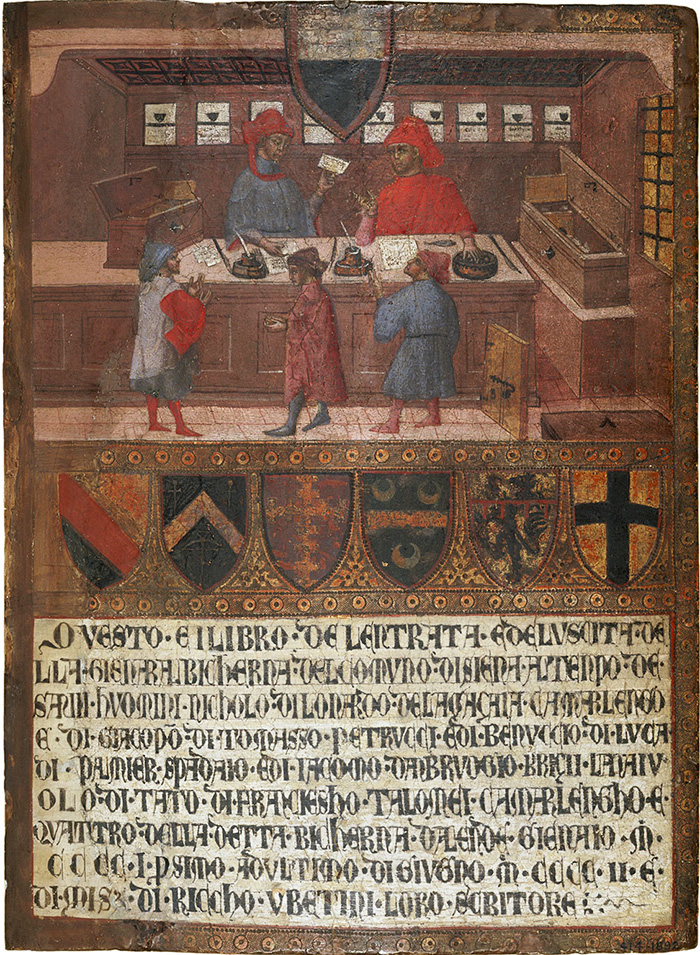 QVESTO · E ILIBRO · DE LENTRATA · EDELVSCITA · DE
LLA · GIENARAL BICHERNA · DEL COMVNO · DI SIENA · ALTENPO · DE
SAVII · HVOMINI · NICHOLO · DI LONARDO · DELAGACAIA · CAMARLENGO
E · DI GIACOPO · DI TOMASSO · PETRVCCI · EDI · BENVCCIO · DI · LVCA
DI · PALMIER · SPADAIO · EDI · IACOMO · DANBRVOGIO · LANAIV
OLO · DI TATO · DI FRANCIESHO · TALOMEI · CAMARLENGHO · E ·
QVATTRO · DELLA · DETTA · BICHERNA · DALENDE · GIENAIO · M ·
CCCC · I · PSIMO · ADVLTIMO · DI GIVGNO · M · CCCC · II · E ·
DI · RICCHO · VBETINI · LORO · SCRITORE
414-1892